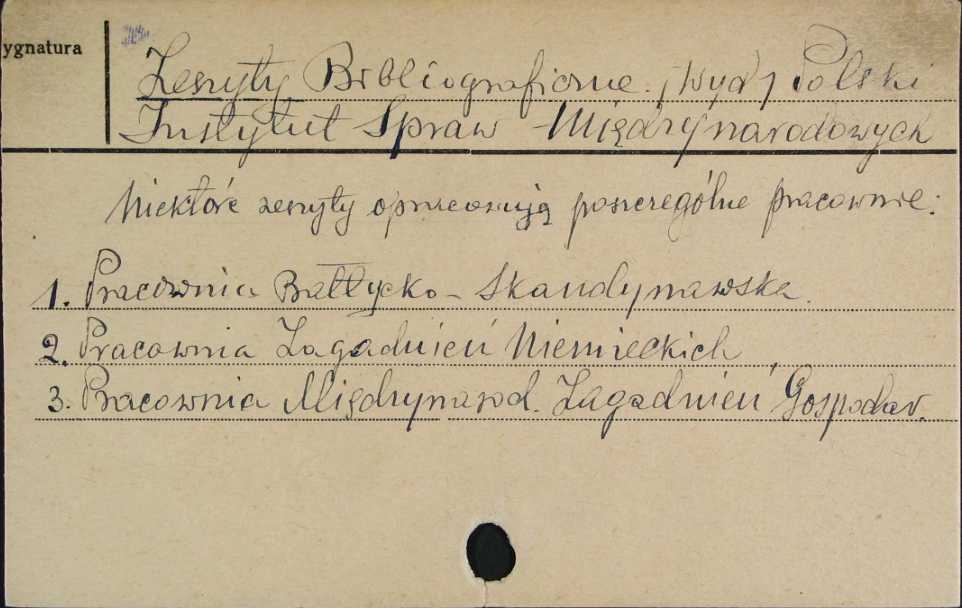 ygnatura
Zeszyty Bibliograficzne. /wyd/ Polski
Instytut Spraw Międzynarodowych
Niektóre zeszyty opracowują poszczególne pracownie:
1. Pracownia Bałtycko-Skandynawska.
2. Pracownia Zagadnień Niemieckich
3. Pracownia Międzynarod. Zagadnień Gospodar.